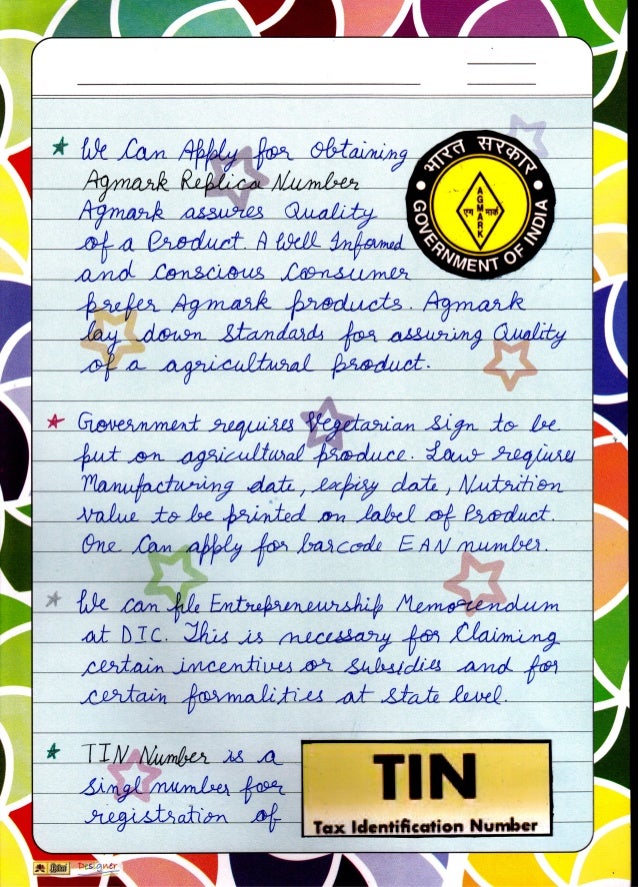 We Can Apply for obtaining
Agmark Replica Number
Agmark assures Quality
of a Product. A Well Informed
and Conscious Consumer
prefer Agmark products. Agmark
lay down Standards for assuring Quality
of a agricultural product.
भारत सरकार
AGMARK
एग मार्क
GOVERNMENT OF INDIA
Government requires Vegetarian Sign to be
put on agricultural produce. Law reqiures
Manufacturing date, expiry date, Nutrition
value to be printed on label of Product.
One Can apply for barcode EAN number.
We can file Entrepreneurship Memorendum
at DIC. This is necessary for Claiming
certain incentives or Subsidies and for
certain formalities at State level.
TIN Number is a
Singl number for
registration of
TIN
Tax Identification Number
Designer